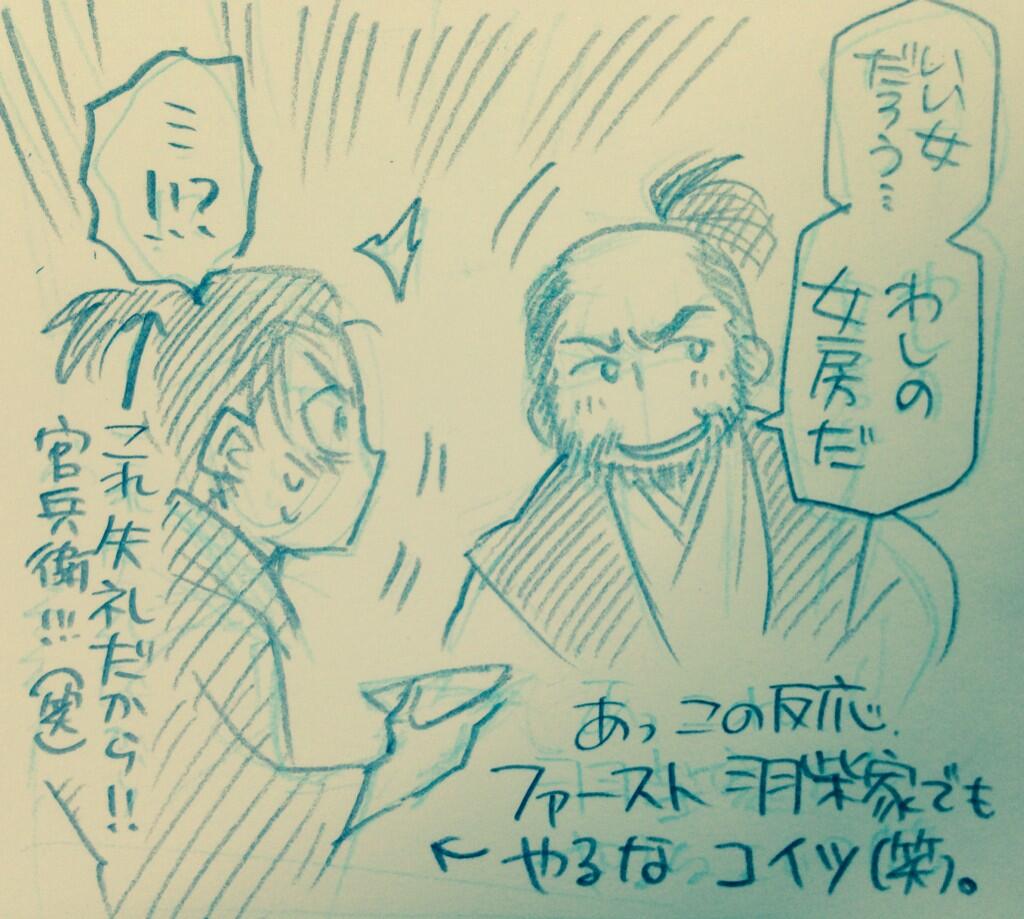 いい女
だろう…
わしの
女房だ
ーー
!!!?
これ失礼だから!!
官兵衛!!!(笑)
あっこの反応、
ファースト羽柴家でも
やるなコイツ(笑)。